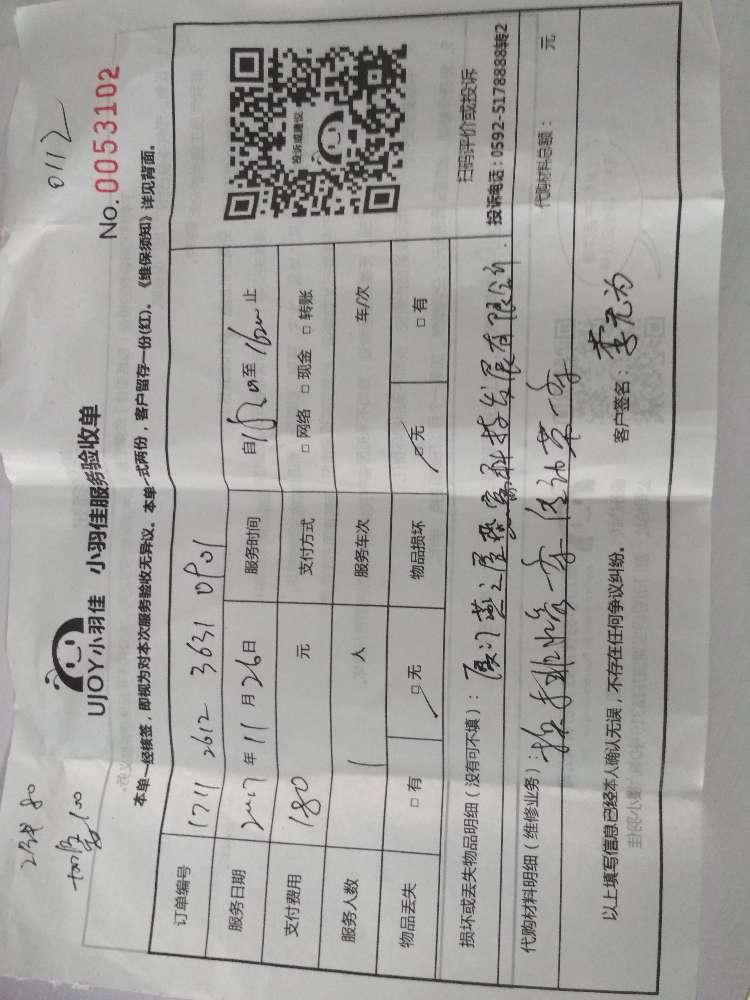 0112
No. 0053102
UJOY小羽佳 小羽佳服务验收单
本单一经核签，即视为对本次服务验收无异议。本单一式两份，客户留存一份(红)。《维保须知》详见背面。
订单编号 1711 2612 3631 0901
服务日期 2017 年 11 月 26 日 服务时间 自 至 止
支付费用 180 元 支付方式 □ 网络 □ 现金 □ 转账
服务人数 1 人 服务车次 车/次
物品丢失 □ 有 □ 无 物品损坏 □ 无 □ 有
投诉或建议
扫码评价或投诉
投诉电话：0592-5178888转2
损坏或丢失物品明细（没有可不填）： 厦门 科技发展有限公司
代购材料明细（维修业务）： 代购材料总额： 元
以上填写信息已经本人确认无误，不存在任何争议纠纷。 客户签名：